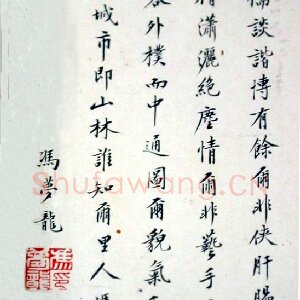 談諧博有餘爾非俠肝腸
瀟灑絕塵情爾非藝手
外樸而中通圖爾貌氣
城市即山林誰知爾里人馮
馮夢龍
Shufawang.cn